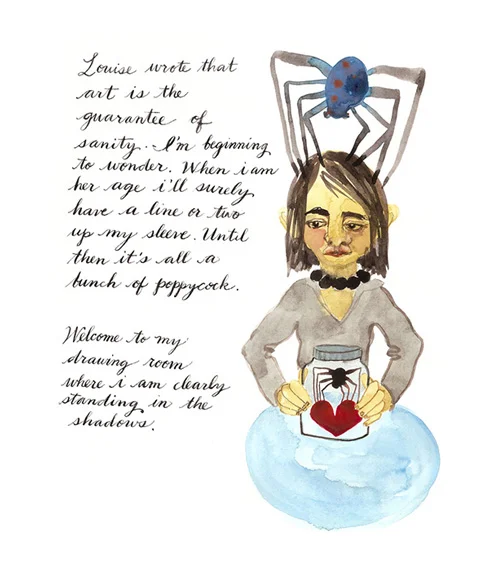 Louise wrote that
art is the
guarantee of
sanity. I'm beginning
to wonder. When i am
her age i'll surely
have a line or two
up my sleeve. Until
then it's all a
bunch of poppycock.
Welcome to my
drawing room
where i am clearly
standing in the
shadows.